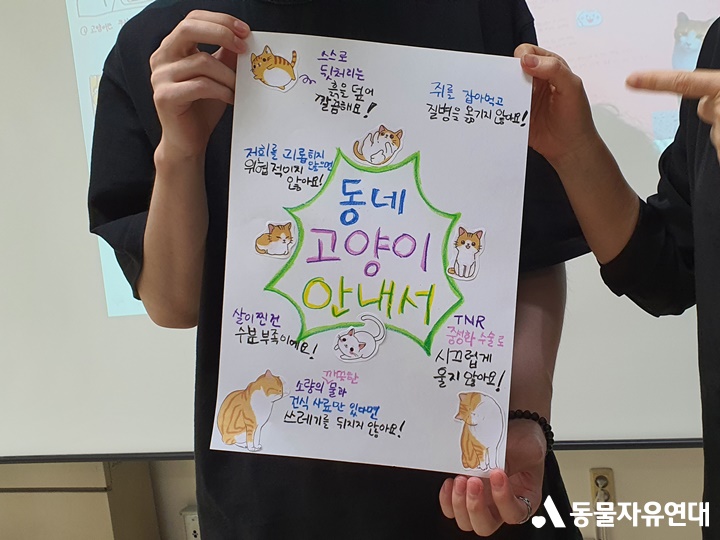 스스로
뒷처리는
흙을 덮어
깔끔해요!
쥐를 잡아먹고
질병을 옮기지 않아요!
저희를 괴롭히지
않으면
위협적이지
않아요!
동네
고양이
안내서
살이찐건
수분부족이에요!
TNR
중성화 수술로
시끄럽게
울지 않아요!
깨끗한
소량의 물과
건식 사료만 있다면
쓰레기를 뒤지지 않아요!
동물자유연대